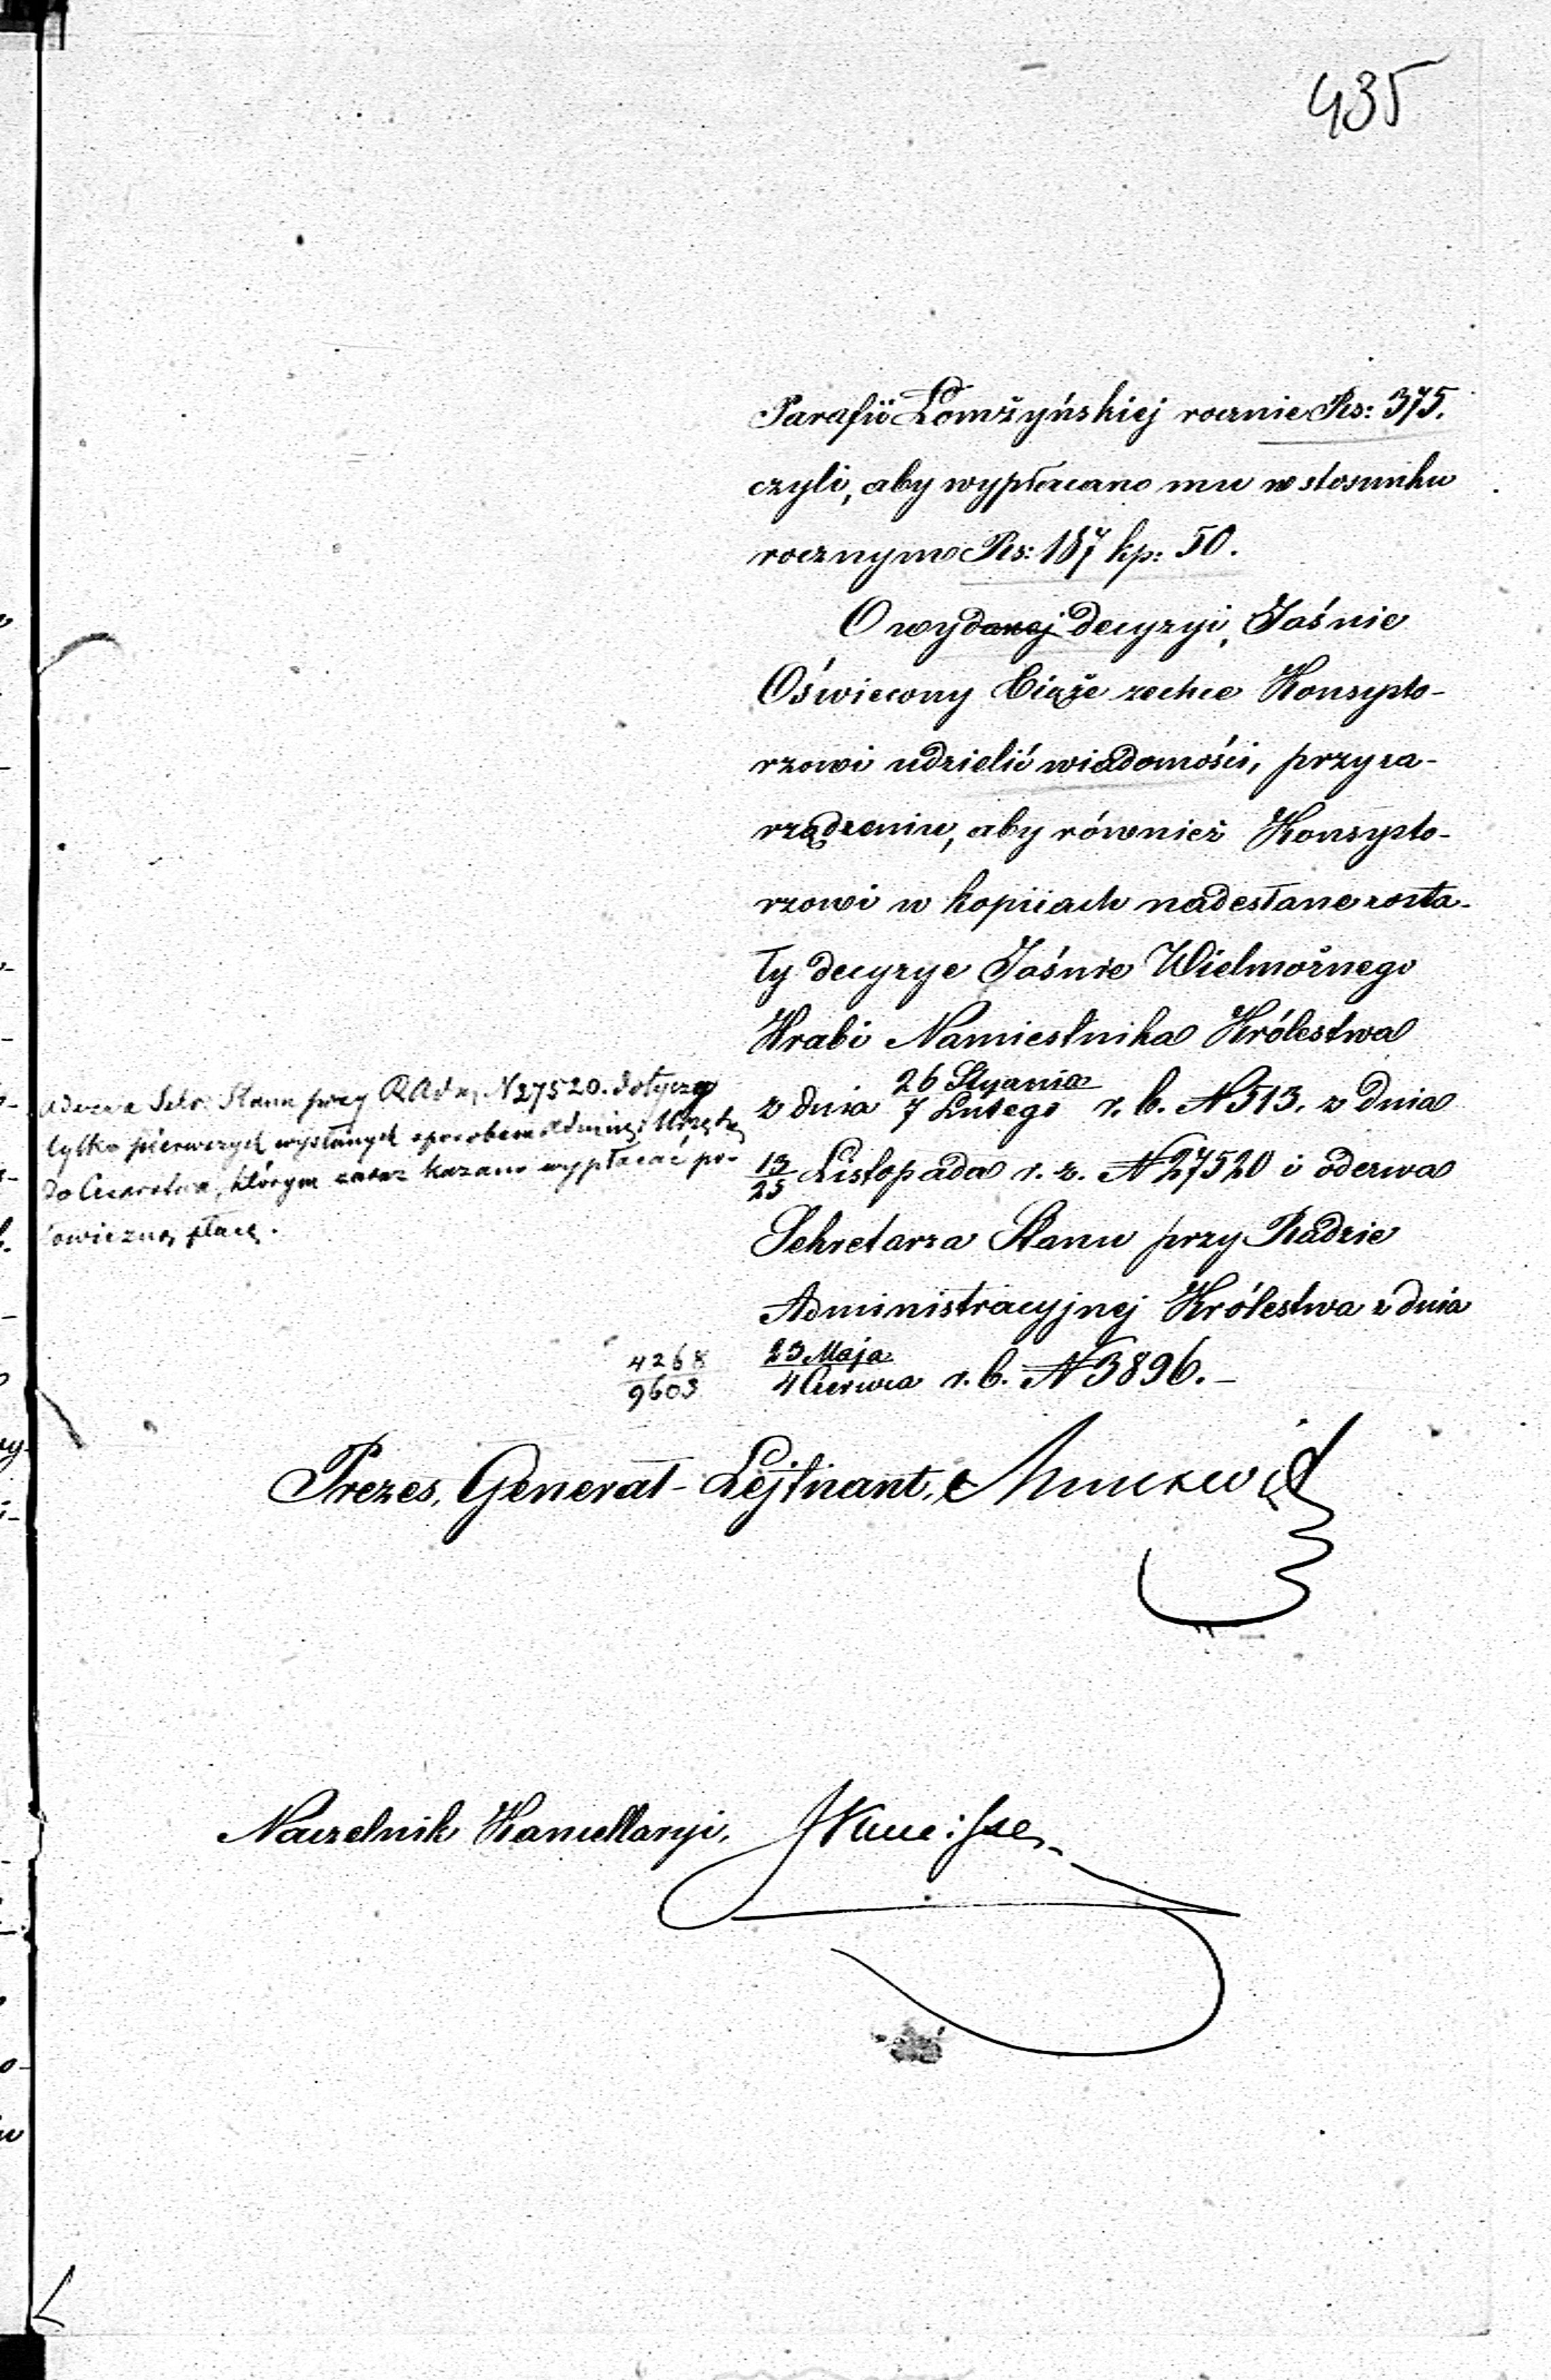 435
Parafii Łomżyńskiej rocznie Rs: 375.
czyli, aby wypłacano mu w stosunku
rocznym Rs: 187 kp: 50.
O wydanej decyzyi, Jaśnie
Oświecony Xiąże zechce Konsysto-
rzowi udzielić wiadomości, przy za-
rządzeniu, aby również Konsysto-
rzowi w kopiiach nadesłane zosta-
ły decyzye Jaśnie Wielmożnego
Hrabi Namiestnika Królestwa
z dnia 26 Stycznia / 7 Lutego r. b. N 513. z dnia
13/25 Listopada r. z. N 27520 i odezwa
Sekretarza Stanu przy Radzie
Administracyjnej Królestwa z dnia
23 Maja / 4 Czerwca r. b. N 3896. –
Odezwa Sekr: Stanu przy R Adm N 27520. dotyczy
tylko pierwszych wysłanych sposobem administr:
do Cesarstwa, którym zaraz kazano wypłacać po-
łowiczną płacę.
4268
9603
Prezes, Generał-Lejtnant,
Naczelnik Kancellaryi,